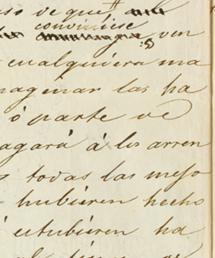 so de que
conviniese
ven
cualquiera ma
maginar las ha
ó parte de
agará á los arren
todas las mejo
hubieren hecho
estubieren ha